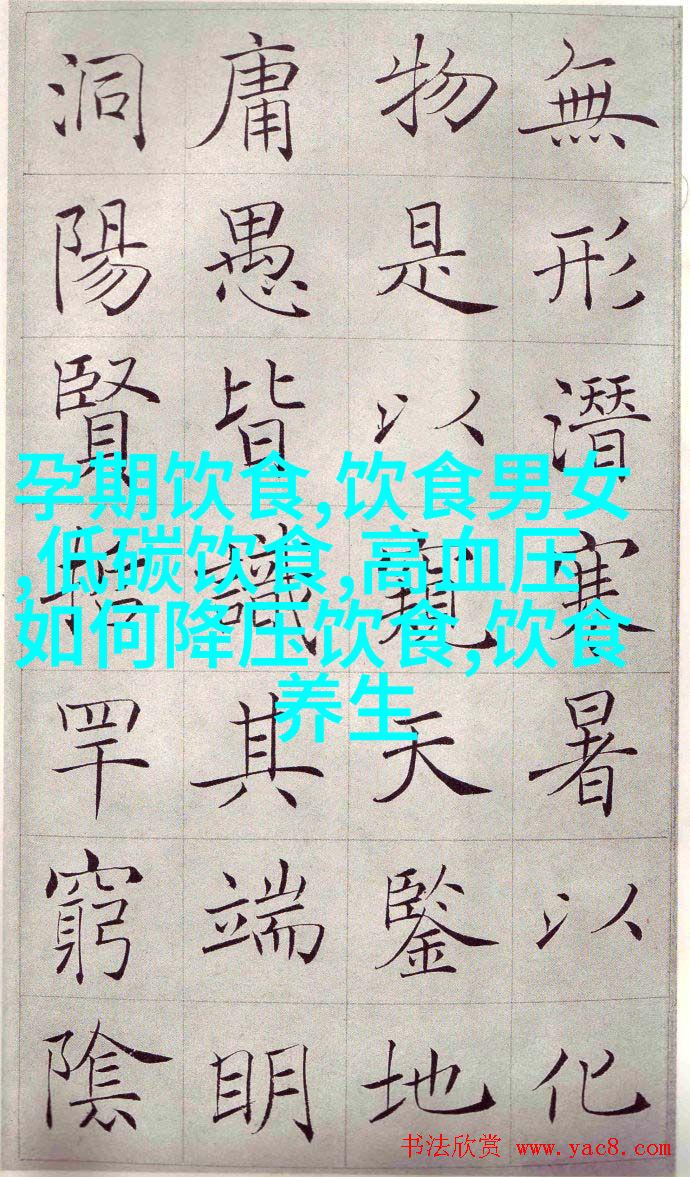 無形潛寒暑以化
物是以窺天鑒地
庸愚皆識其端明
洞陽賢罕窮陰
孕期饮食,饮食男女
,低碳饮食,高血压
如何降压饮食,饮食
养生
书法欣赏 www.yac8.com